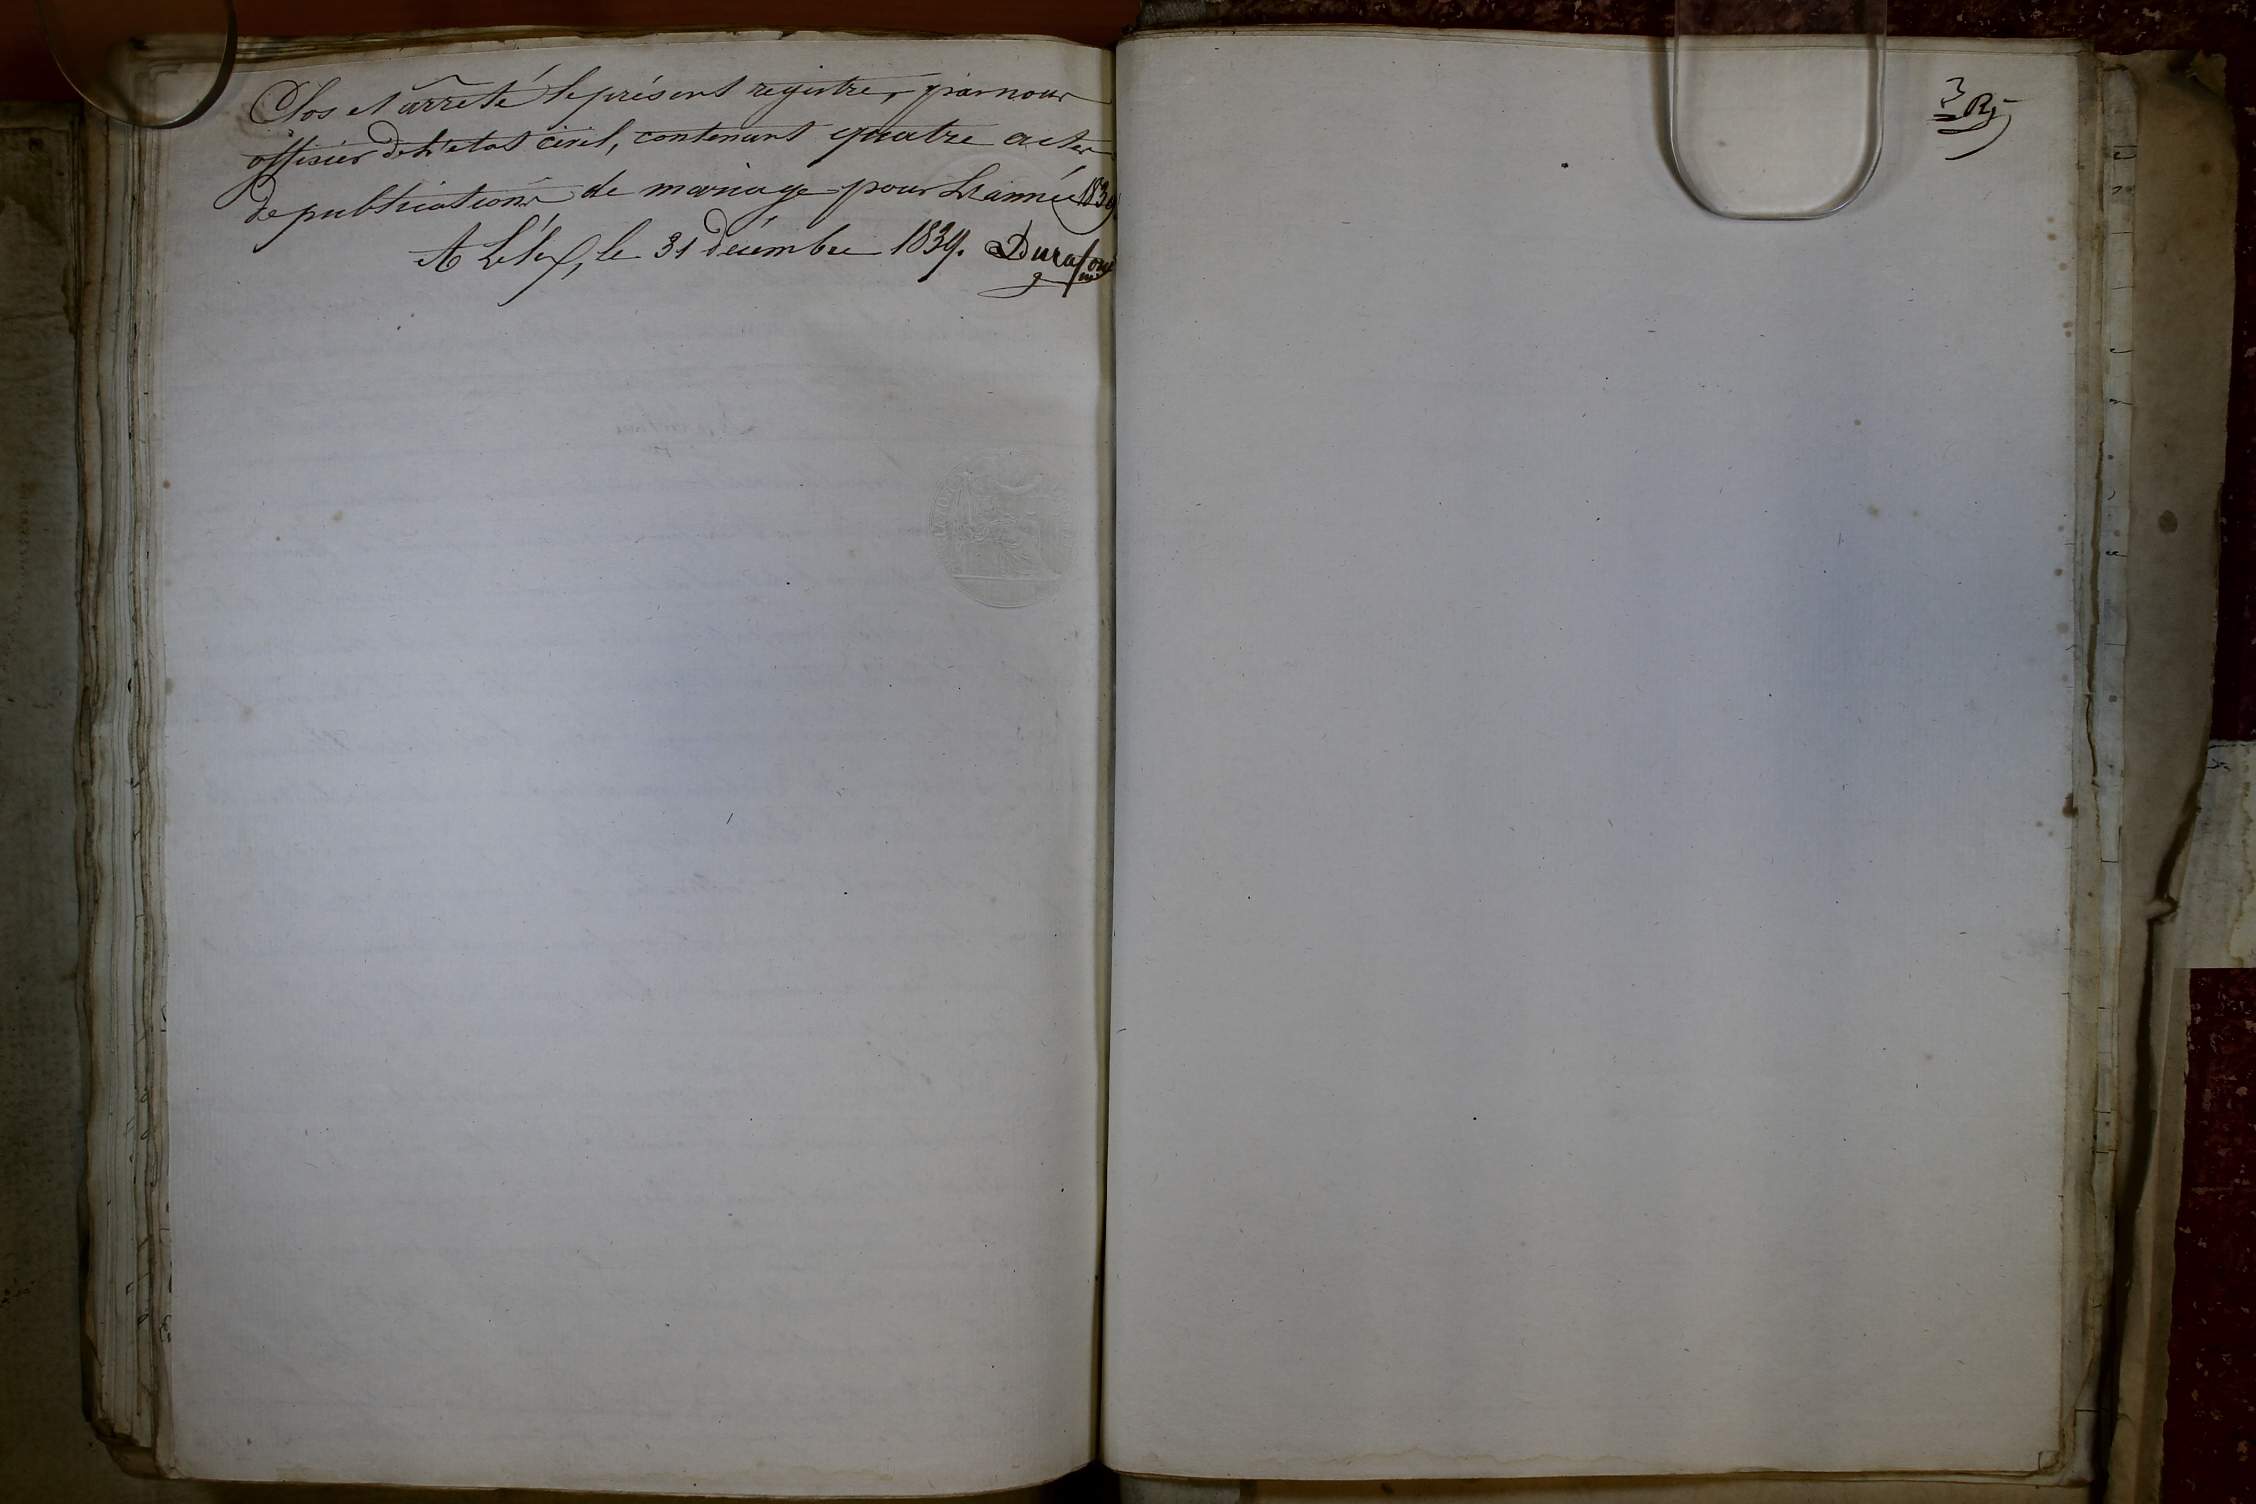 Clos et arrêté le présent registre, par nous
officier de l'etat civil, contenant quatre actes
de publications de mariage pour L'année 1839
A Lélex, le 31 décembre 1839. Durafour
3